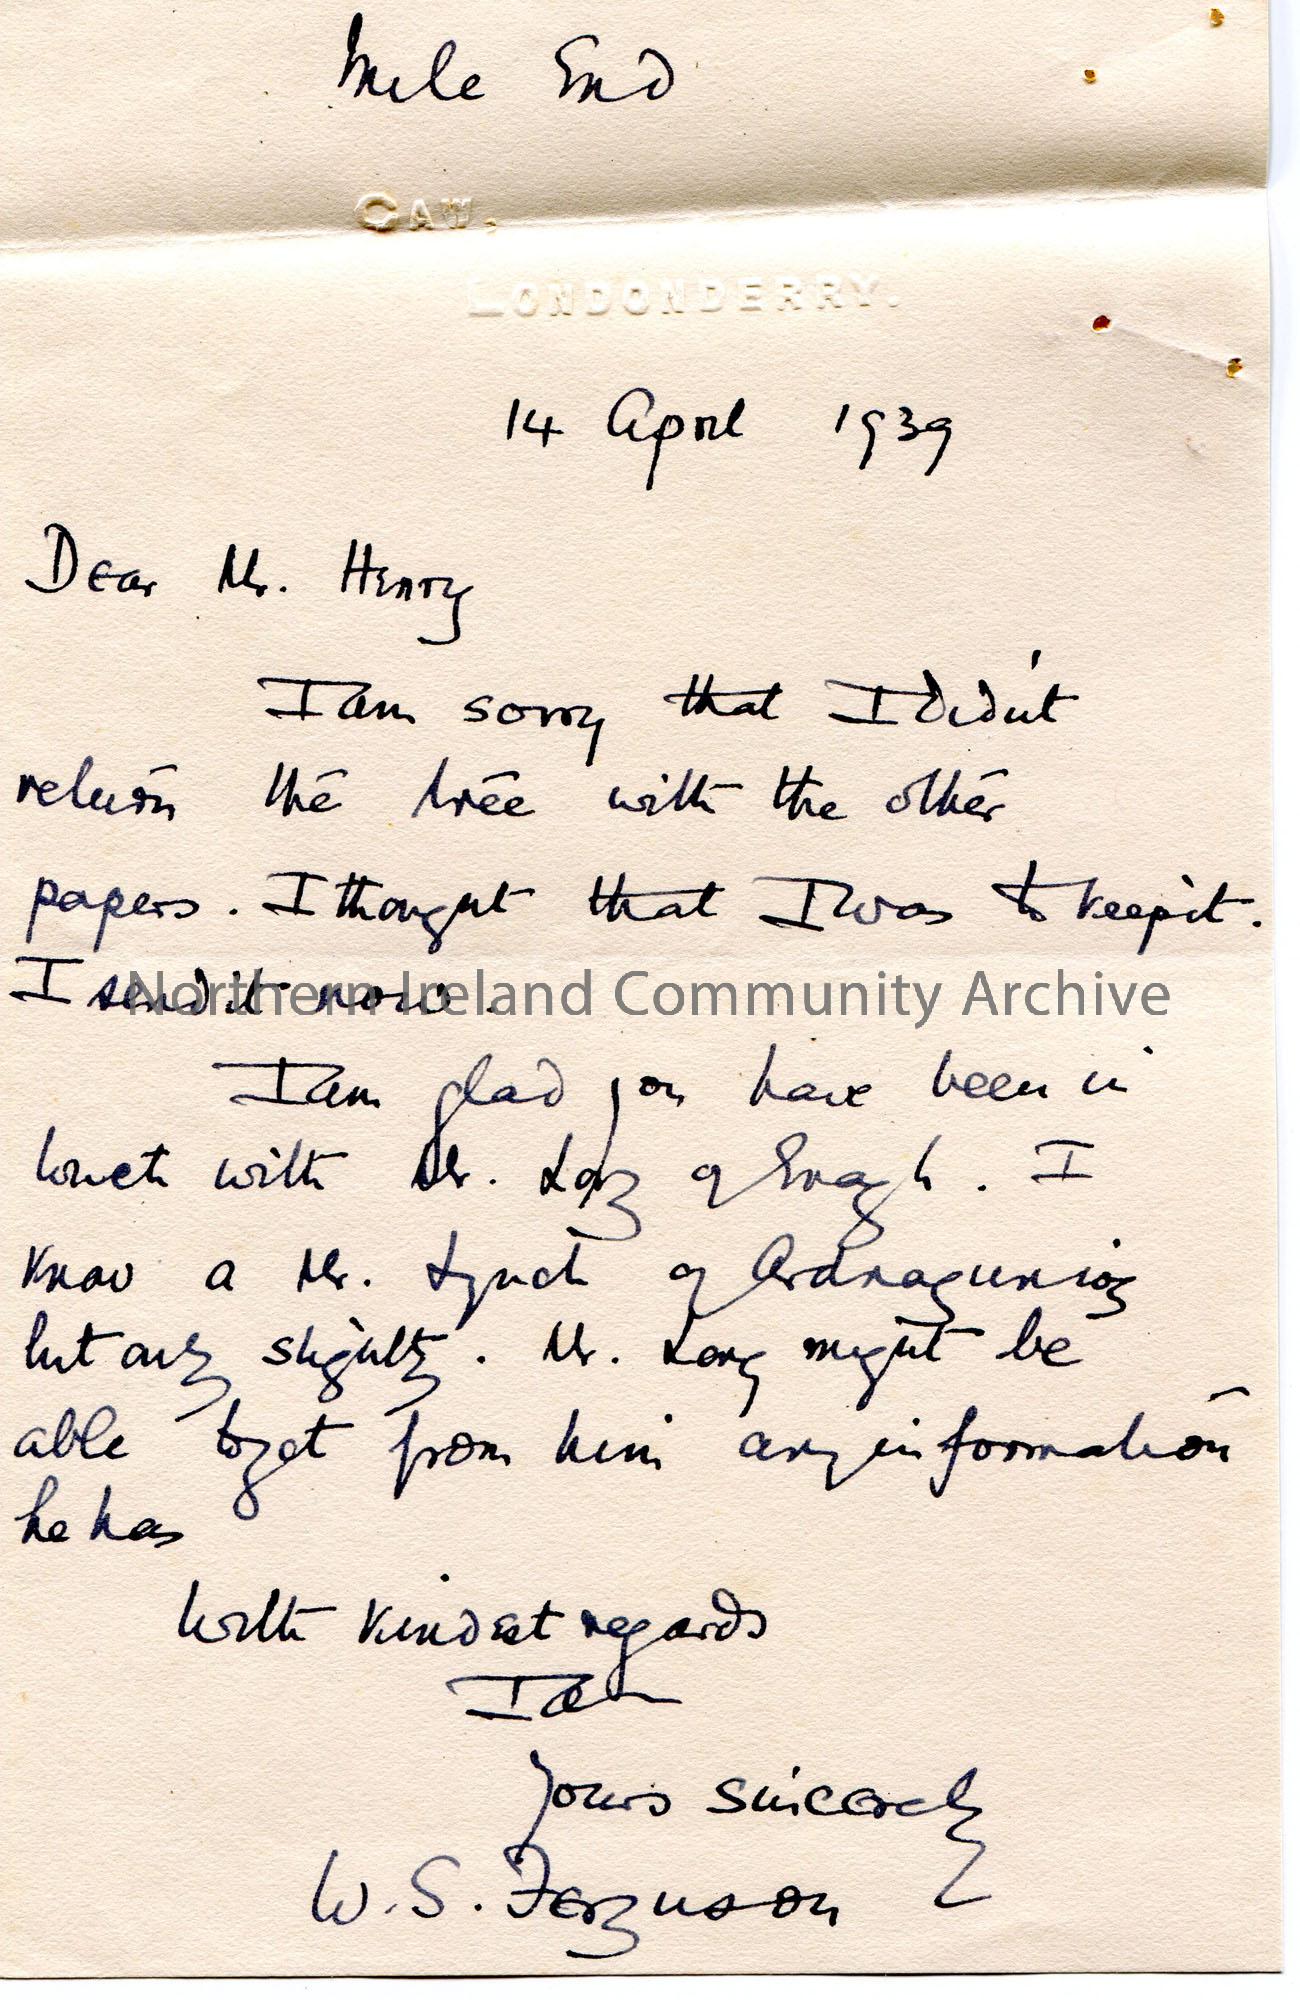 Mile End
CAW.
LONDONDERRY.
14 April 1939
Dear Mr. Henry
I am sorry that I didn't
return the tree with the other
papers. I thought that I was to keep it.
I send it now.
Northern Ireland Community Archive
I am glad you have been in
touch with Mr. Long of Enagh. I
know a Mr. Lynch of
but only slightly. Mr. Long might be
able to get from him any information
he has
With kindest regards
I am
Yours sincerely
W. S. Ferguson